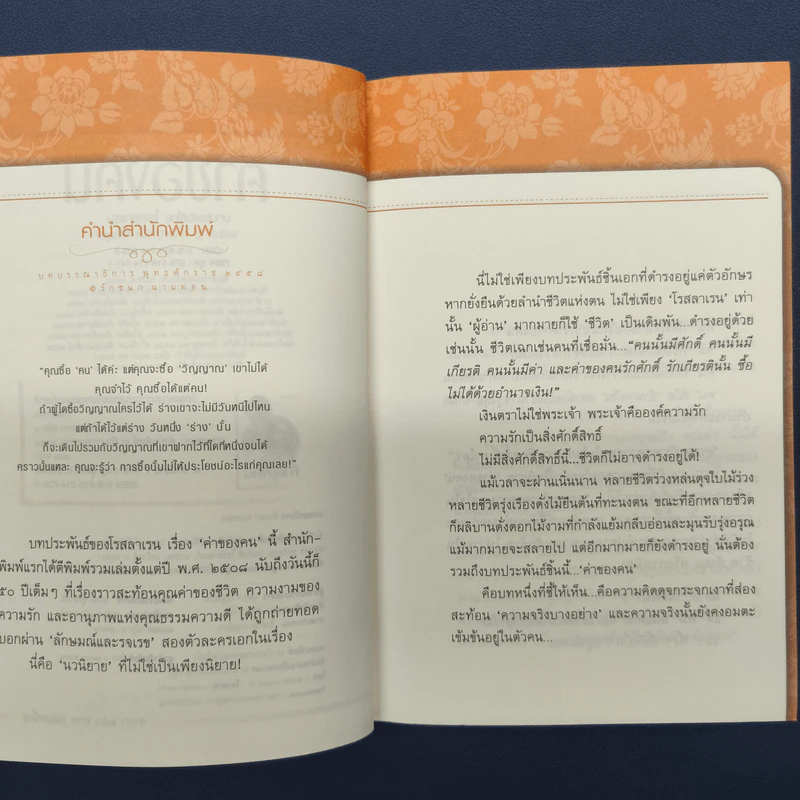 คำนำสำนักพิมพ์
บทบรรณาธิการ พุทธศักราช ๒๕๕๘
@รักชนก นามทอน
“คุณซื้อ ‘คน’ ได้ค่ะ แต่คุณจะซื้อ ‘วิญญาณ’ เขาไม่ได้
คุณจำไว้ คุณซื้อได้แต่คน!
ถ้าผู้ใดซื้อวิญญาณใครไว้ได้ ร่างเขาจะไม่มีวันหนีไปไหน
แต่ถ้าได้ไว้แต่ร่าง วันหนึ่ง ‘ร่าง’ นั้น
ก็จะเดินไปรวมกับวิญญาณที่เขาฝากไว้ที่ใดที่หนึ่งจนได้
คราวนั้นแหละ คุณจะรู้ว่า การซื้อนั้นไม่ให้ประโยชน์อะไรแก่คุณเลย!”
บทประพันธ์ของโรสลาเรน เรื่อง ‘ค่าของคน’ นี้ สำนัก-
พิมพ์แรกได้ตีพิมพ์รวมเล่มตั้งแต่ปี พ.ศ. ๒๕๐๘ นับถึงวันนี้ก็
๕๐ ปีเต็มๆ ที่เรื่องราวสะท้อนคุณค่าของชีวิต ความงามของ
ความรัก และอานุภาพแห่งคุณธรรมความดี ได้ถูกถ่ายทอด
บอกผ่าน ‘ลักษมณ์และรจเรข’ สองตัวละครเอกในเรื่อง
นี่คือ ‘นวนิยาย’ ที่ไม่ใช่เป็นเพียงนิยาย!
นี่ไม่ใช่เพียงบทประพันธ์ชิ้นเอกที่ดำรงอยู่แค่ตัวอักษร
หากยั่งยืนด้วยลำนำชีวิตแห่งตน ไม่ใช่เพียง ‘โรสลาเรน’ เท่า
นั้น ‘ผู้อ่าน’ มากมายก็ใช้ ‘ชีวิต’ เป็นเดิมพัน...ดำรงอยู่ด้วย
เช่นนั้น ชีวิตเฉกเช่นคนที่เชื่อมั่น...“คนนั้นมีศักดิ์ คนนั้นมี
เกียรติ คนนั้นมีค่า และค่าของคนรักศักดิ์ รักเกียรตินั้น ซื้อ
ไม่ได้ด้วยอำนาจเงิน!”
เงินตราไม่ใช่พระเจ้า พระเจ้าคือองค์ความรัก
ความรักเป็นสิ่งศักดิ์สิทธิ์
ไม่มีสิ่งศักดิ์สิทธิ์นี้...ชีวิตก็ไม่อาจดำรงอยู่ได้!
แม้เวลาจะผ่านเนิ่นนาน หลายชีวิตร่วงหล่นดุจใบไม้ร่วง
หลายชีวิตรุ่งเรืองดั่งไม้ยืนต้นที่ทะนงตน ขณะที่อีกหลายชีวิต
ก็ผลิบานดั่งดอกไม้งามที่กำลังแย้มกลีบอ่อนละมุนรับรุ่งอรุณ
แม้มากมายจะสลายไป แต่อีกมากมายก็ยังดำรงอยู่ นั่นต้อง
รวมถึงบทประพันธ์ชิ้นนี้...‘ค่าของคน’
คือบทหนึ่งที่ชี้ให้เห็น...คือความคิดดุจกระจกเงาที่ส่อง
สะท้อน ‘ความจริงบางอย่าง’ และความจริงนั้นยังคงอมตะ
เข้มข้นอยู่ในตัวคน...